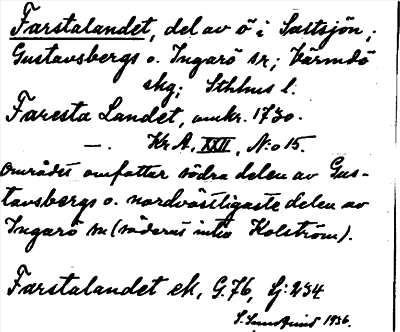 Farstalandet, del av ö i Saltsjön;
Gustavsbergs o. Ingarö sr; Värmdö
skg; Sthlms l.
Faresta Landet, omkr. 1730.
—. Kr. A. XXII, N:o 15.
Området omfattar södra delen av Gus-
tavsbergs o. nordvästligaste delen av
Ingarö sn (söderut intill Kolström).
Farstalandet ek, G. 76, Sj: 234
1936.